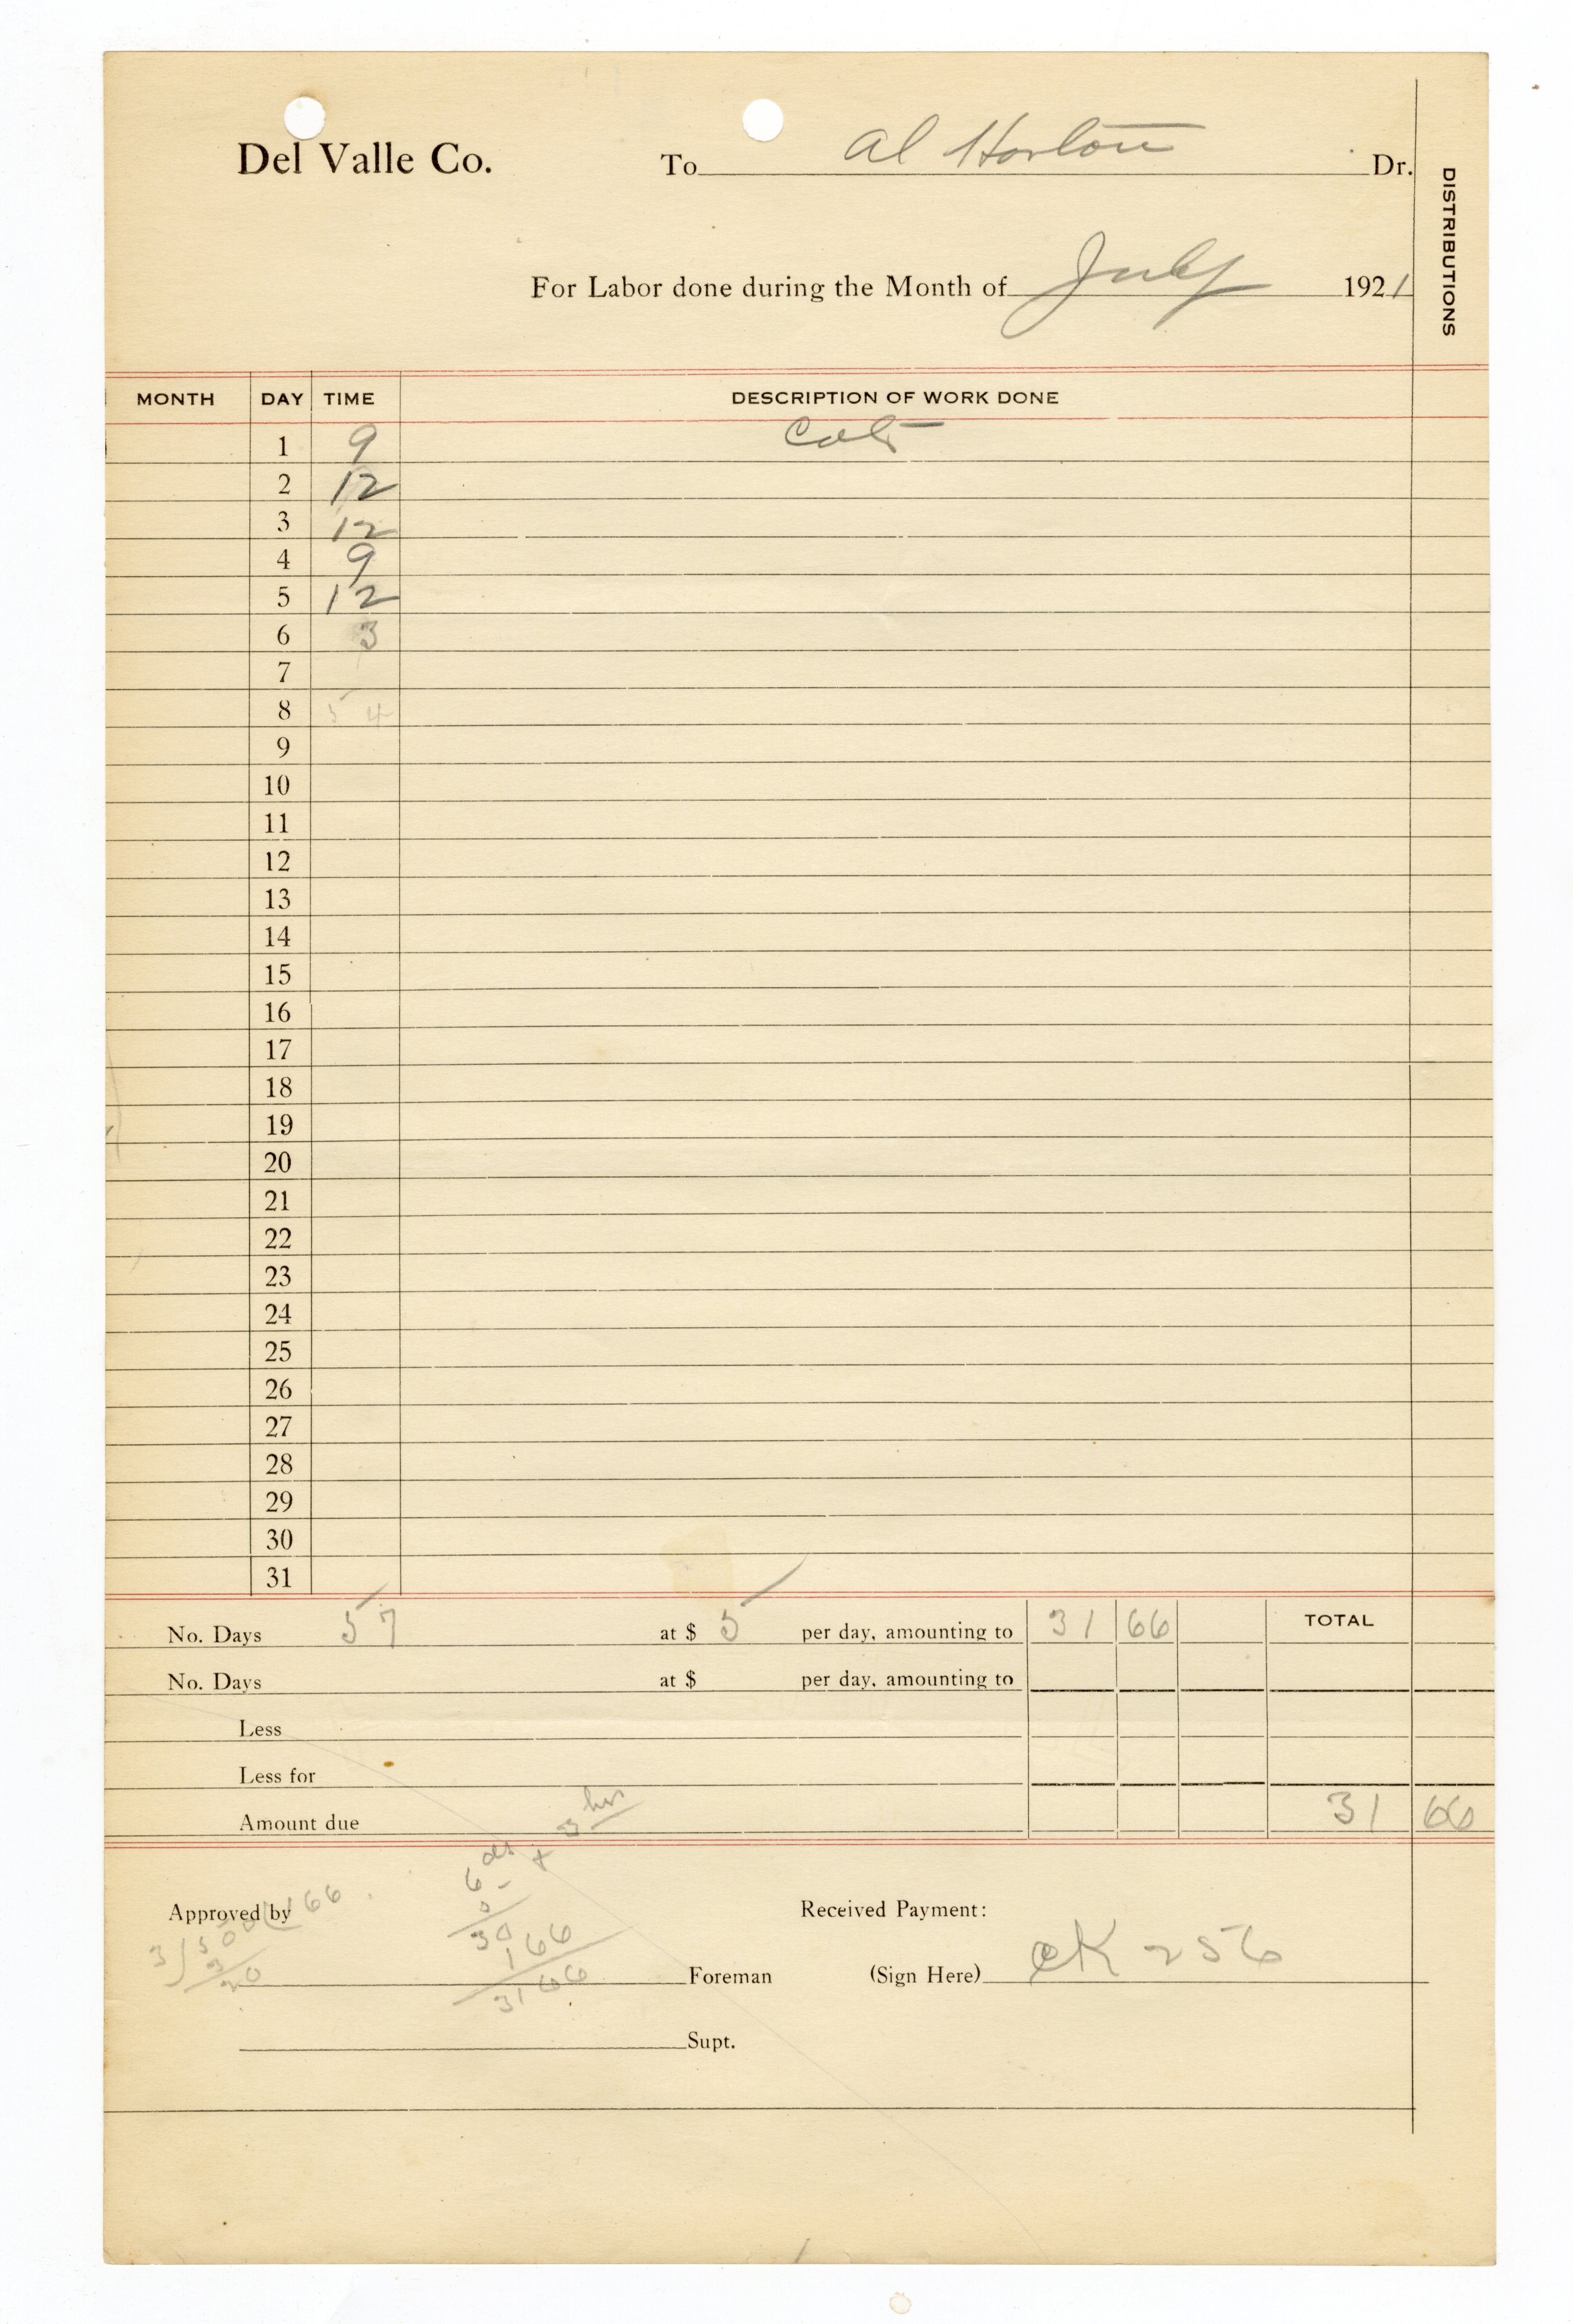 Del Valle Co. To Al Horton Dr.
DISTRIBUTIONS
For Labor done during the Month of July 1921
MONTH DAY TIME DESCRIPTION OF WORK DONE
1 9
2 12
3 12
4 9
5 12
6 3
7
8 54
9
10
11
12
13
14
15
16
17
18
19
20
21
22
23
24
25
26
27
28
29
30
31
No. Days 57 at $ 5 per day, amounting to 31 66 TOTAL
No. Days at $ per day, amounting to
Less
Less for
Amount due 31 66
6 ds + 3 hrs
5
30
1 66
31 66
Approved by
3) 500 166
3
20
Received Payment:
Foreman (Sign Here) CK 256
Supt.